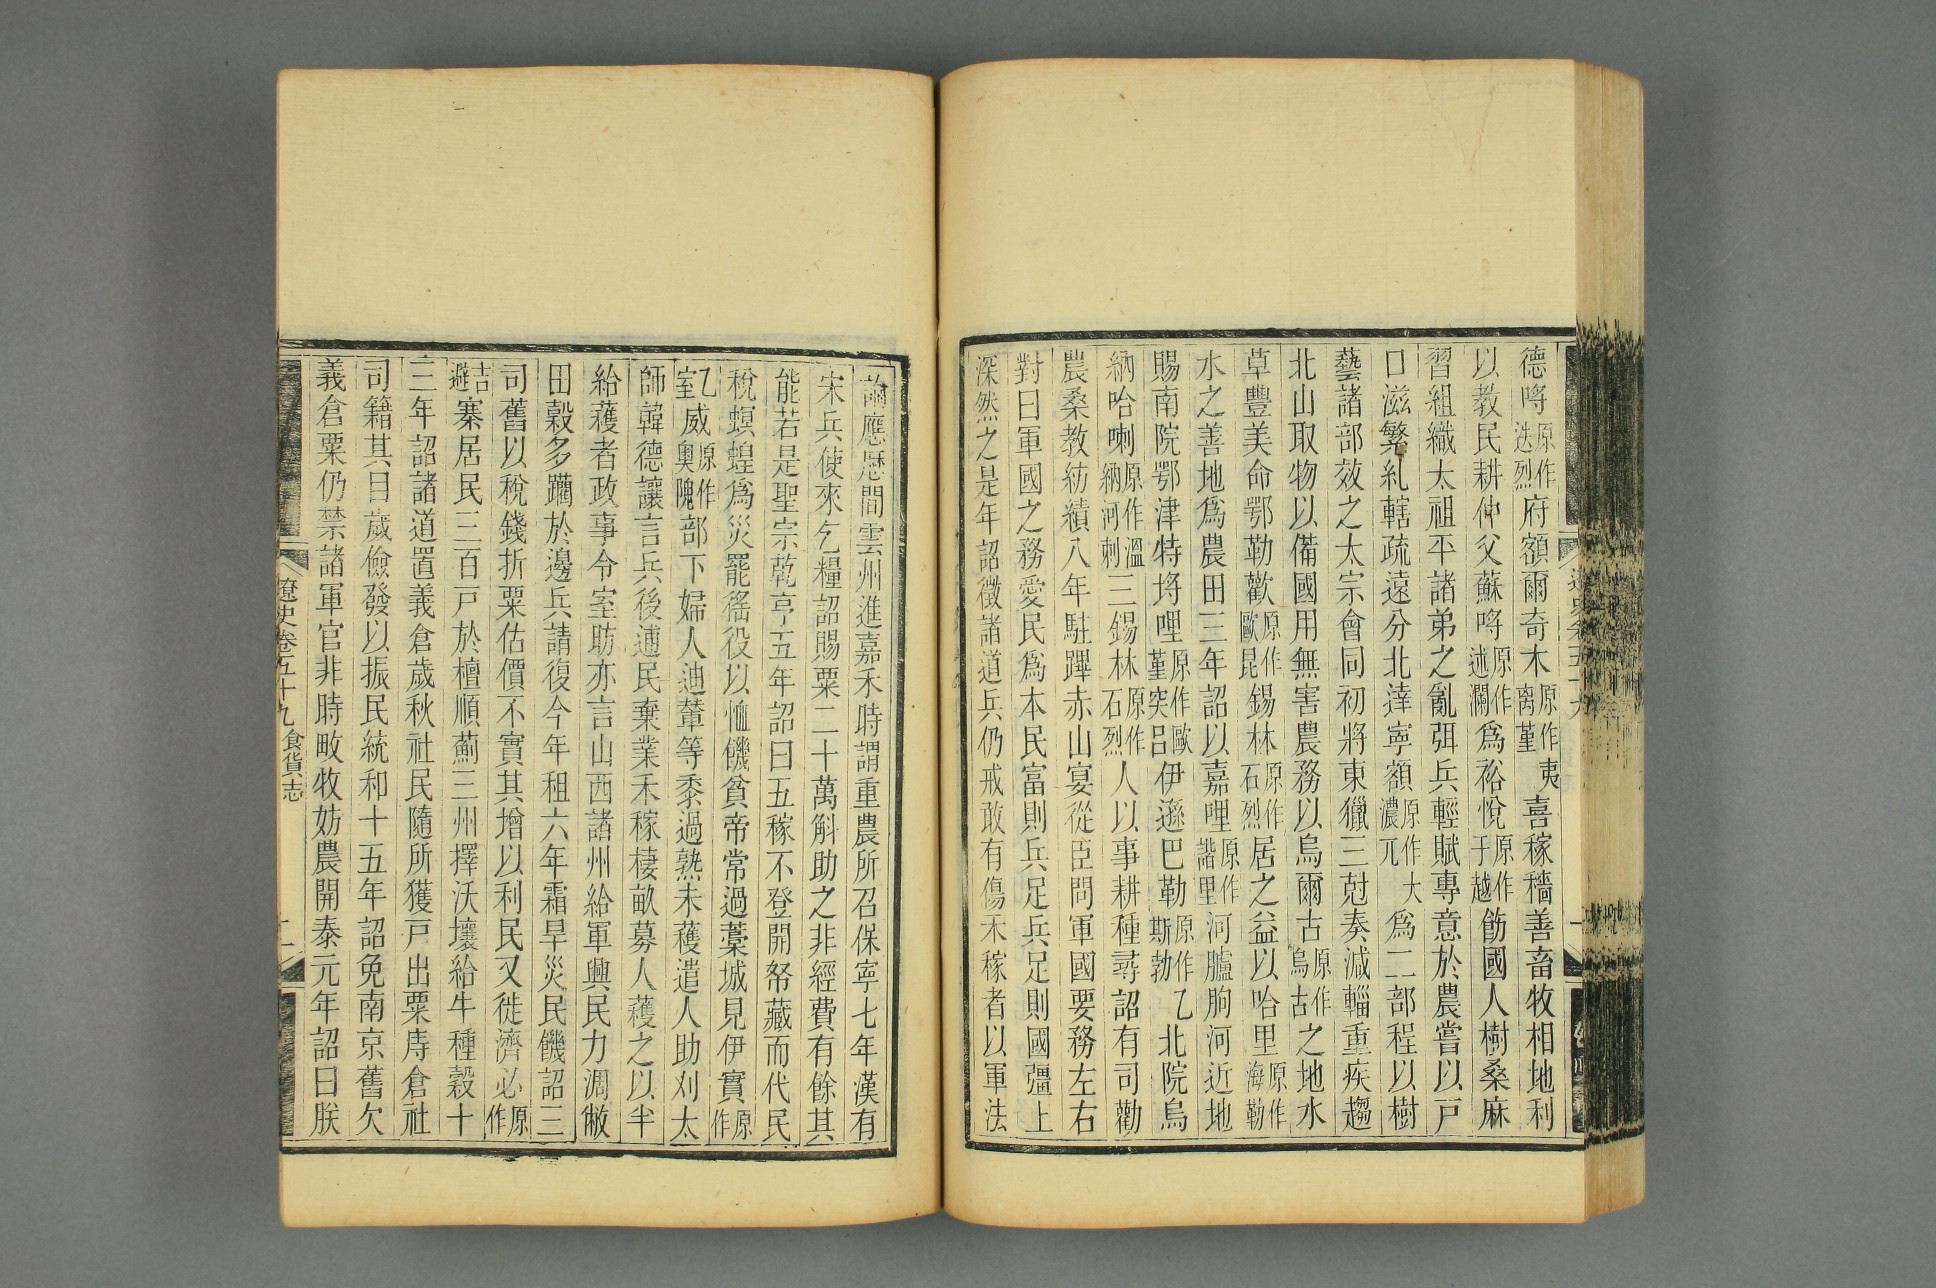 德哷原作迭烈府額爾奇木原作夷离堇喜稼穡善畜牧相地利
以教民耕仲父蘇哷原作述瀾爲裕悅原作于越飭國人樹桑麻
習組織太祖平諸弟之亂弭兵輕賦專意於農嘗以戸
口滋繁糺轄疏遠分北達寧額原作大濃兀爲二部程以樹
藝諸部效之太宗會同初將東獵三尅奏減輜重疾趨
北山取物以備國用無害農務以烏爾古原作烏古之地水
草豐美命鄂勒歡原作歐昆錫林原作石烈居之益以哈里原作海勒
水之善地爲農田三年詔以嘉哩原作諧里河臚朐河近地
賜南院鄂津特埒哩原作歐堇突呂伊遜巴勒原作乙斯勃北院烏
納哈喇原作溫納河刺三錫林原作石烈人以事耕種尋詔有司勸
農桑教紡績八年駐蹕赤山宴從臣問軍國要務左右
對曰軍國之務愛民爲本民富則兵足兵足則國彊上
深然之是年詔徵諸道兵仍戒敢有傷禾稼者以軍法
論應歷間雲州進嘉禾時謂重農所召保寧七年漢有
宋兵使來乞糧詔賜粟二十萬斛助之非經費有餘其
能若是聖宗乾亨五年詔曰五稼不登開帑藏而代民
稅螟蝗爲災罷徭役以恤饑貧帝常過藁城見伊實原作
乙室威奧原作隗部下婦人迪輦等黍過熟未穫遣人助刈太
師韓德讓言兵後逋民棄業禾稼棲畝募人穫之以半
給穫者政事令室昉亦言山西諸州給軍興民力凋敝
田穀多躪於邊兵請復今年租六年霜旱災民饑詔三
司舊以稅錢折粟估價不實其增以利民又徙濟必原作
吉避寨居民三百戸於檀順薊三州擇沃壤給牛種穀十
三年詔諸道置義倉歲秋社民隨所獲戸出粟庤倉社
司籍其目歲儉發以振民統和十五年詔免南京舊欠
義倉粟仍禁諸軍官非時畋牧妨農開泰元年詔曰朕
遼史卷五十九 食貨志